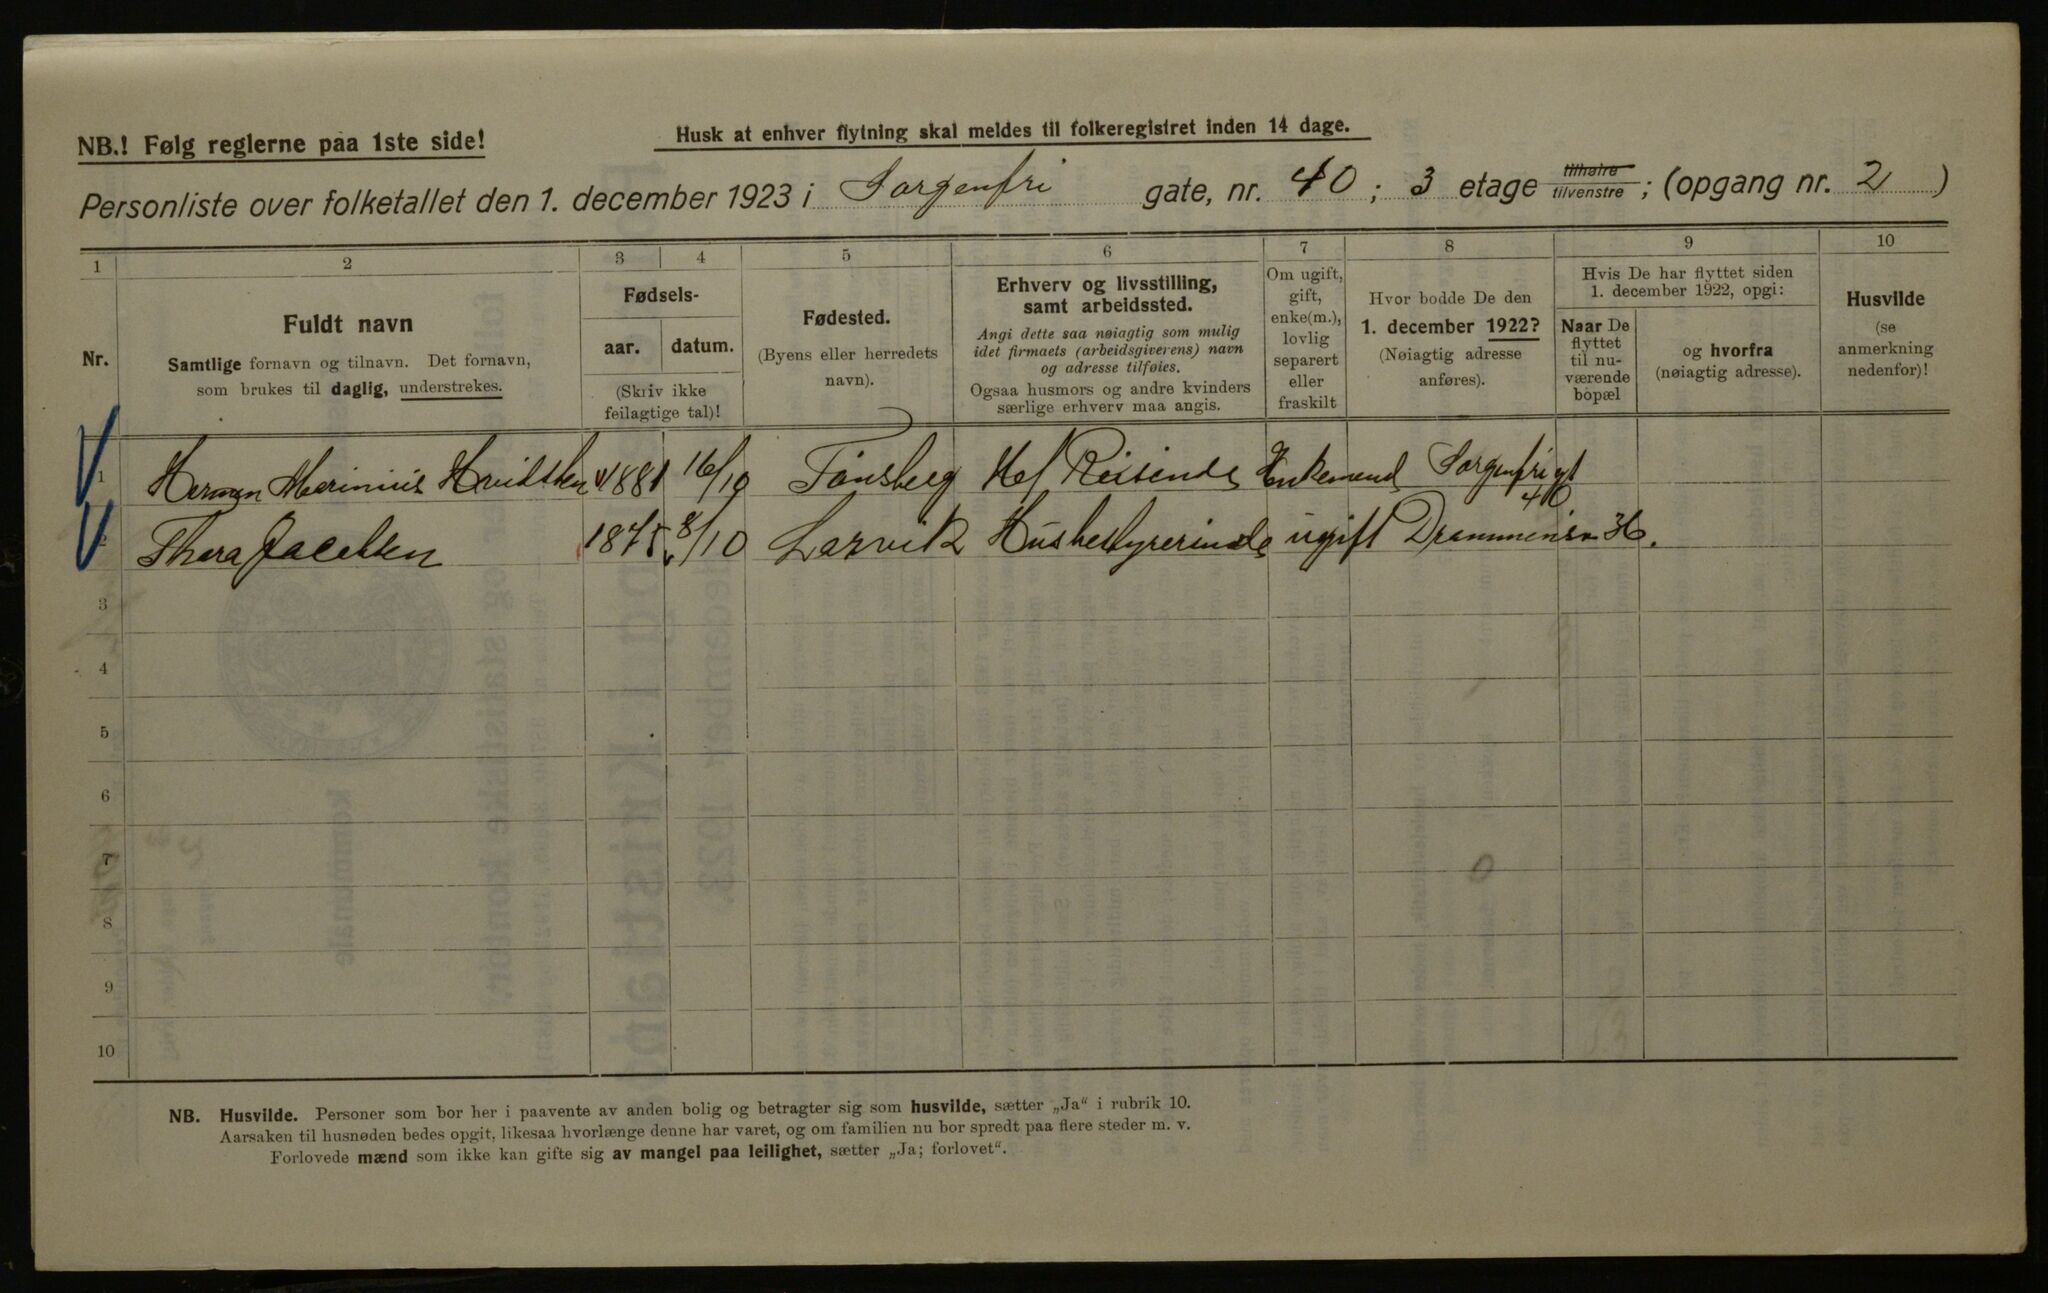 NB.! Følg reglerne paa 1ste side!
Husk at enhver flytning skal meldes til folkeregistret inden 14 dage.
Personliste over folketallet den 1. december 1923 i Sorgenfri gate, nr. 40; 3 etage tilhøire tilvenstre; (opgang nr. 2)
1 2 3 4 5 6 7 8 9 10
Nr.
Fuldt navn
Samtlige fornavn og tilnavn. Det fornavn,
som brukes til daglig, understrekes.
Fødsels-
aar. datum.
(Skriv ikke
feilagtige tal)!
Fødested.
(Byens eller herredets
navn).
Erhverv og livsstilling,
samt arbeidssted.
Angi dette saa nøiagtig som mulig
idet firmaets (arbeidsgiverens) navn
og adresse tilføies.
Ogsaa husmors og andre kvinders
særlige erhverv maa angis.
Om ugift,
gift,
enke(m.),
lovlig
separert
eller
fraskilt
Hvor bodde De den
1. december 1922?
(Nøiagtig adresse
anføres).
Hvis De har flyttet siden
1. december 1922, opgi:
Naar De
flyttet
til nu-
værende
bopæl
og hvorfra
(nøiagtig adresse).
Husvilde
(se
anmerkning
nedenfor)!
1 Herman Marinius 1881 16/10 Tønsberg Reisende Enkemand Sorgenfrigt 40
2 Thora Jacobsen 1875 8/10 Larvik Husbestyrerinde ugift Drammensv 36.
3
4
5
6
7
8
9
10
NB. Husvilde. Personer som bor her i paavente av anden bolig og betragter sig som husvilde, sætter „Ja" i rubrik 10.
Aarsaken til husnøden bedes opgit, likesaa hvorlænge denne har varet, og om familien nu bor spredt paa flere steder m. v.
Forlovede mænd som ikke kan gifte sig av mangel paa leilighet, sætter „Ja; forlovet".